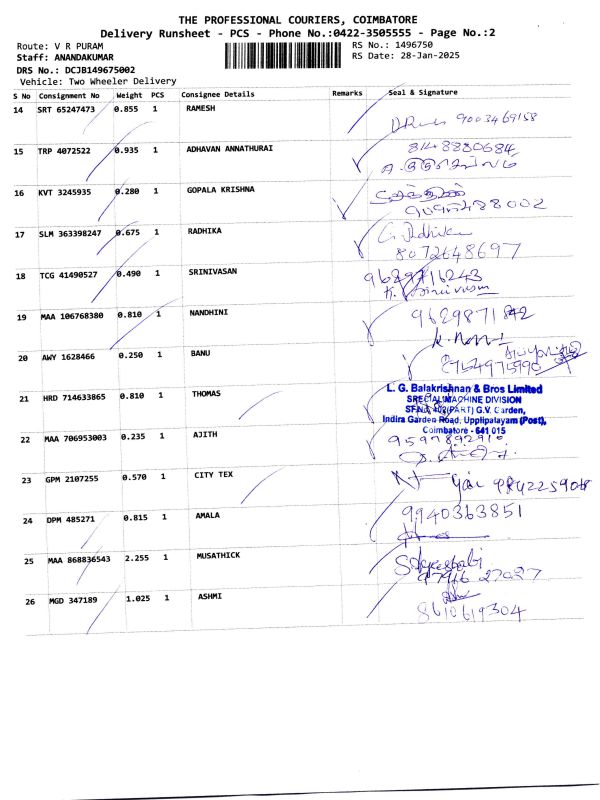 THE PROFESSIONAL COURIERS, COIMBATORE
Delivery Runsheet - PCS - Phone No.:0422-3505555 - Page No.:2
Route: V R PURAM
RS No.: 1496750
Staff: ANANDAKUMAR
RS Date: 28-Jan-2025
DRS No.: DCJB149675002
Vehicle: Two Wheeler Delivery
S No Consignment No Weight PCS Consignee Details Remarks Seal & Signature
14 SRT 65247473 0.855 1 RAMESH
9003469158
15 TRP 4072522 0.935 1 ADHAVAN ANNATHURAI
8148880684
16 KVT 3245935 0.280 1 GOPALA KRISHNA
17 SLM 363398247 0.675 1 RADHIKA
G. Radhika
8072648697
18 TCG 41490527 0.490 1 SRINIVASAN
K. Srinivasan
19 MAA 106768380 0.810 1 NANDHINI
9629871842
20 AWY 1628466 0.250 1 BANU
21 HRD 714633865 0.810 1 THOMAS
L. G. Balakrishnan & Bros Limited
SPECIAL MACHINE DIVISION
SF.No. 402(PART) G.V. Garden,
Indira Garden Road, Upplipalayam (Post),
Coimbatore - 641 015
22 MAA 706953003 0.235 1 AJITH
9597892910
23 GPM 2107255 0.570 1 CITY TEX
24 DPM 485271 0.815 1 AMALA
9940363851
25 MAA 868836543 2.255 1 MUSATHICK
97916 27027
26 MGD 347189 1.025 1 ASHMI
8610619304